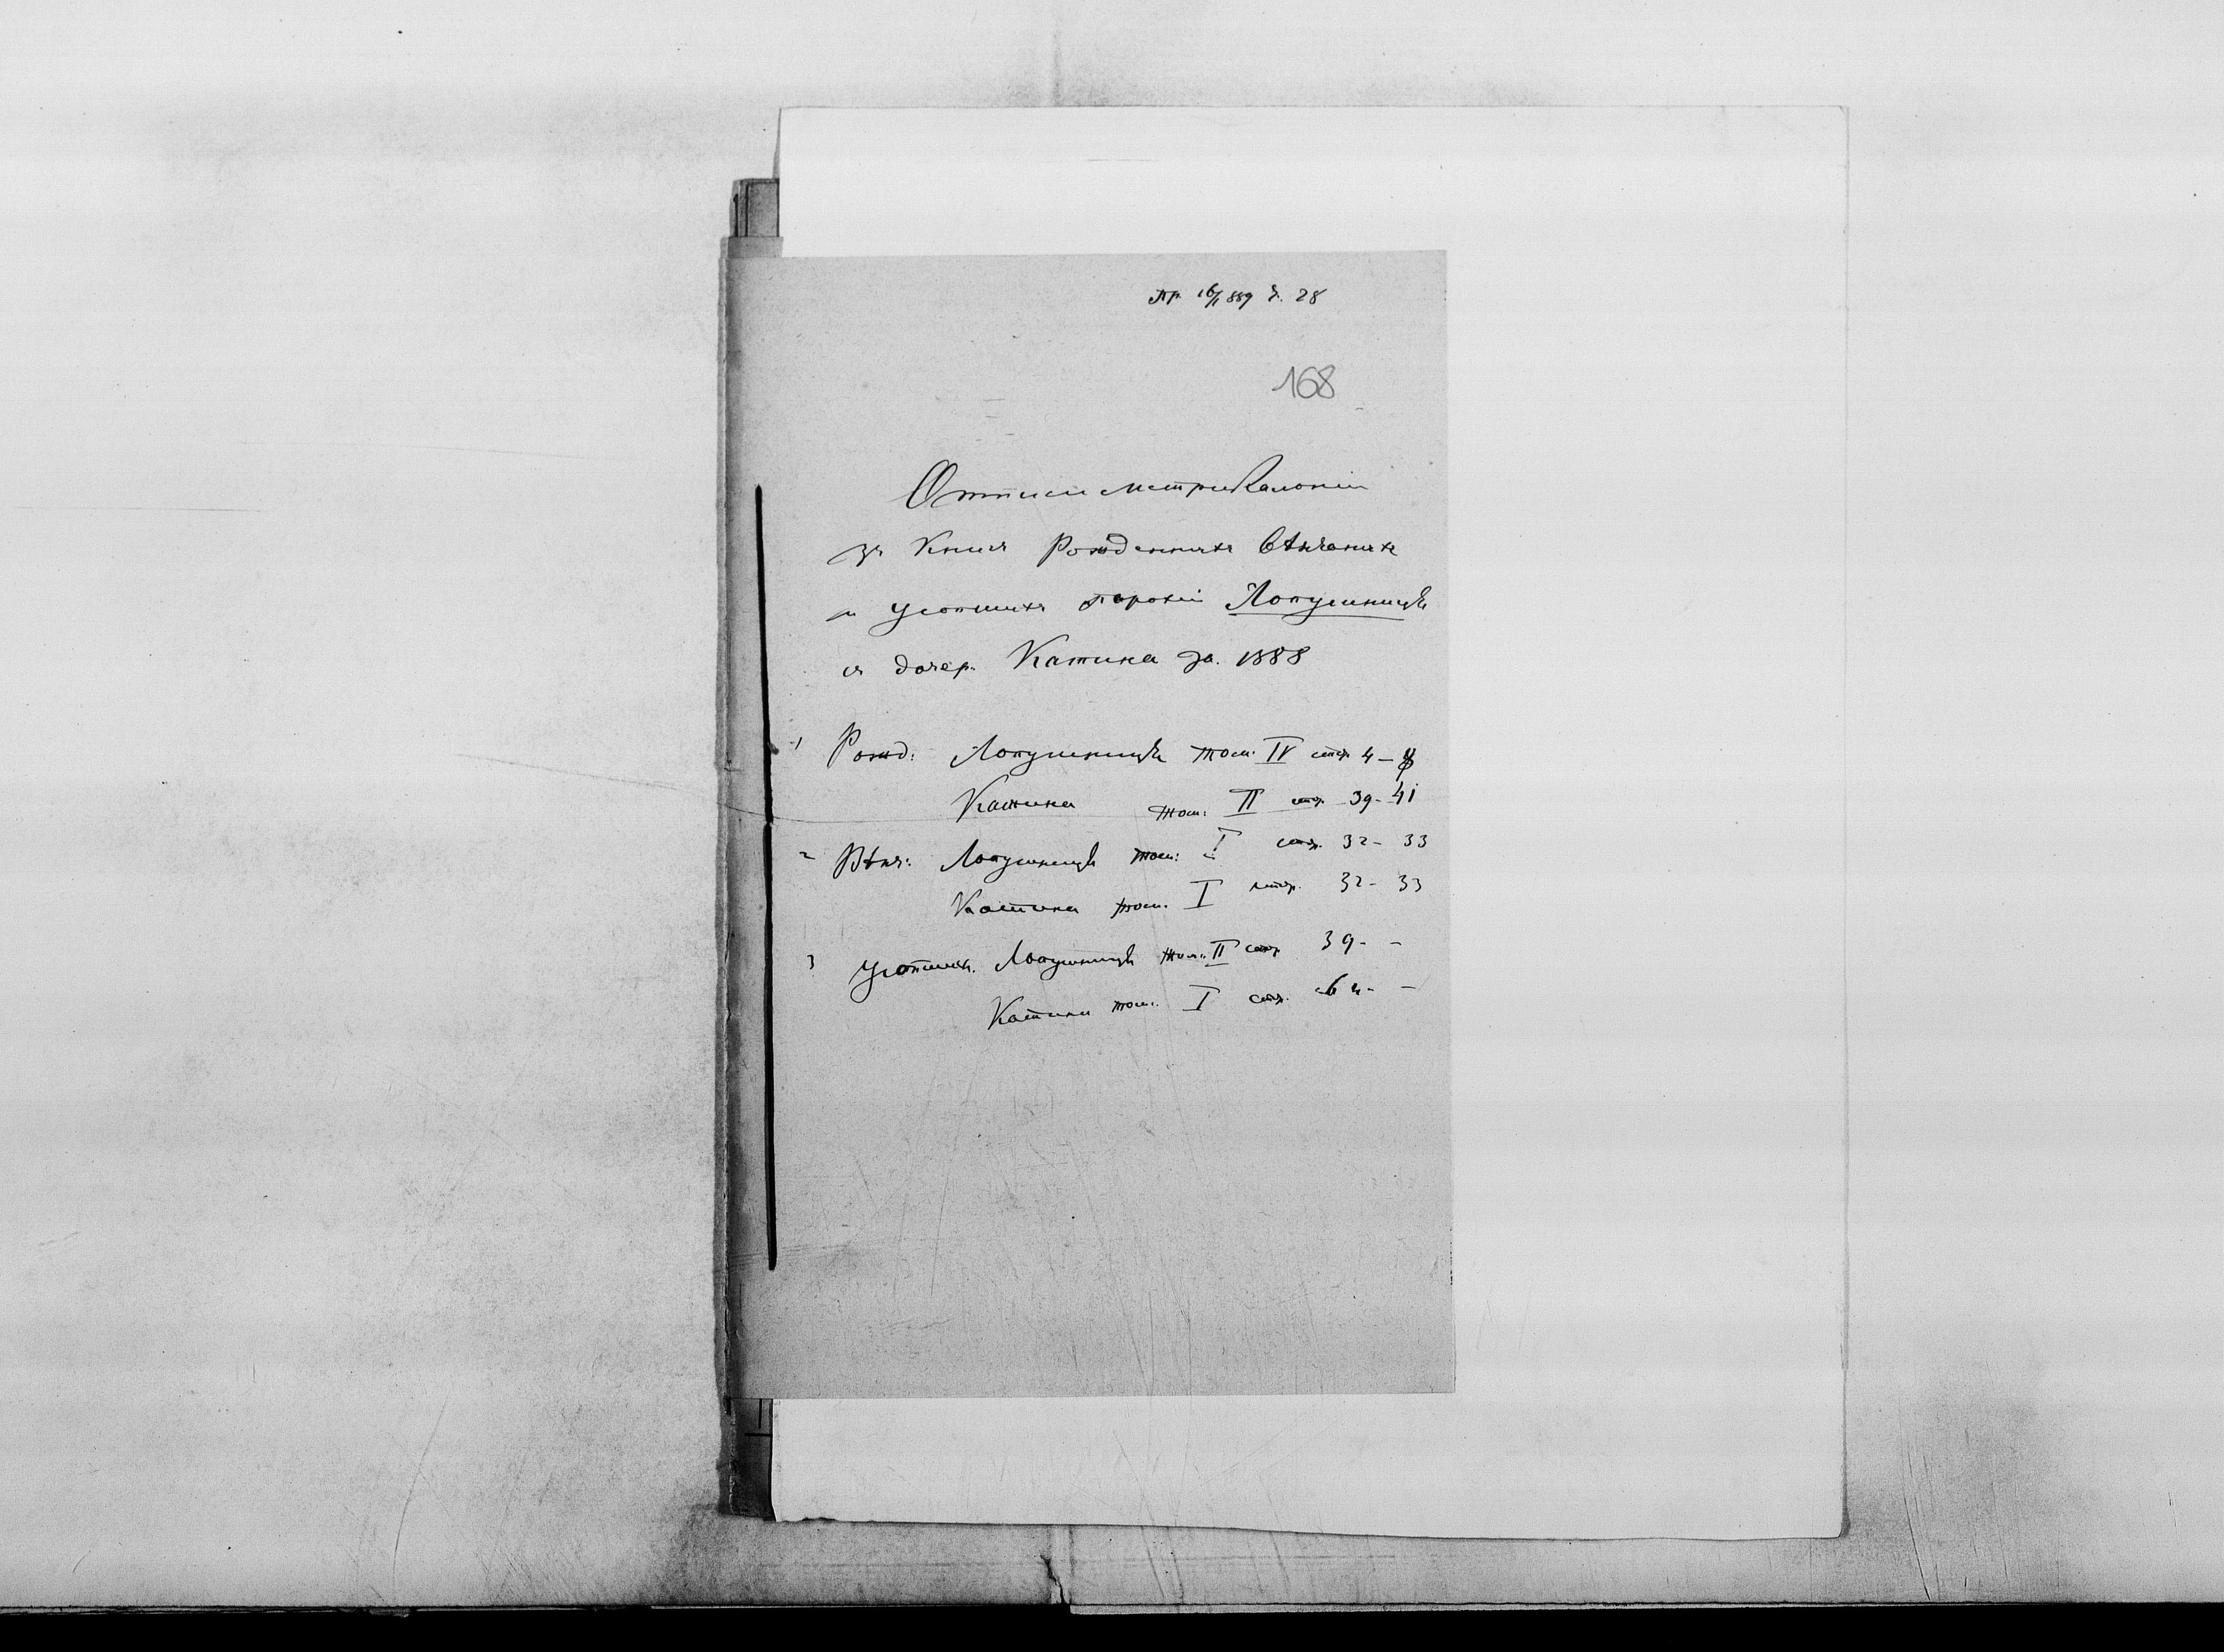 Пр. 16/1 889 ч. 28
168
Отписи метрикалонiи
зъ Книгъ Рожденныхъ Вѣнчаныхъ
и Усопшихъ парохiи Лопушницѣ
съ дочер. Катина за. 1888
1 Рожд: Лопушницѣ том. IV стр. 4 –
Катина том: II стр. 39 - 41
2 Вѣнч: Лопушницѣ том: I стр. 32 - 33
Катина том. I стр. 32 - 33
3 Усопших. Лопушницѣ том: II стр 39 - -
Катина том. I стр. - -